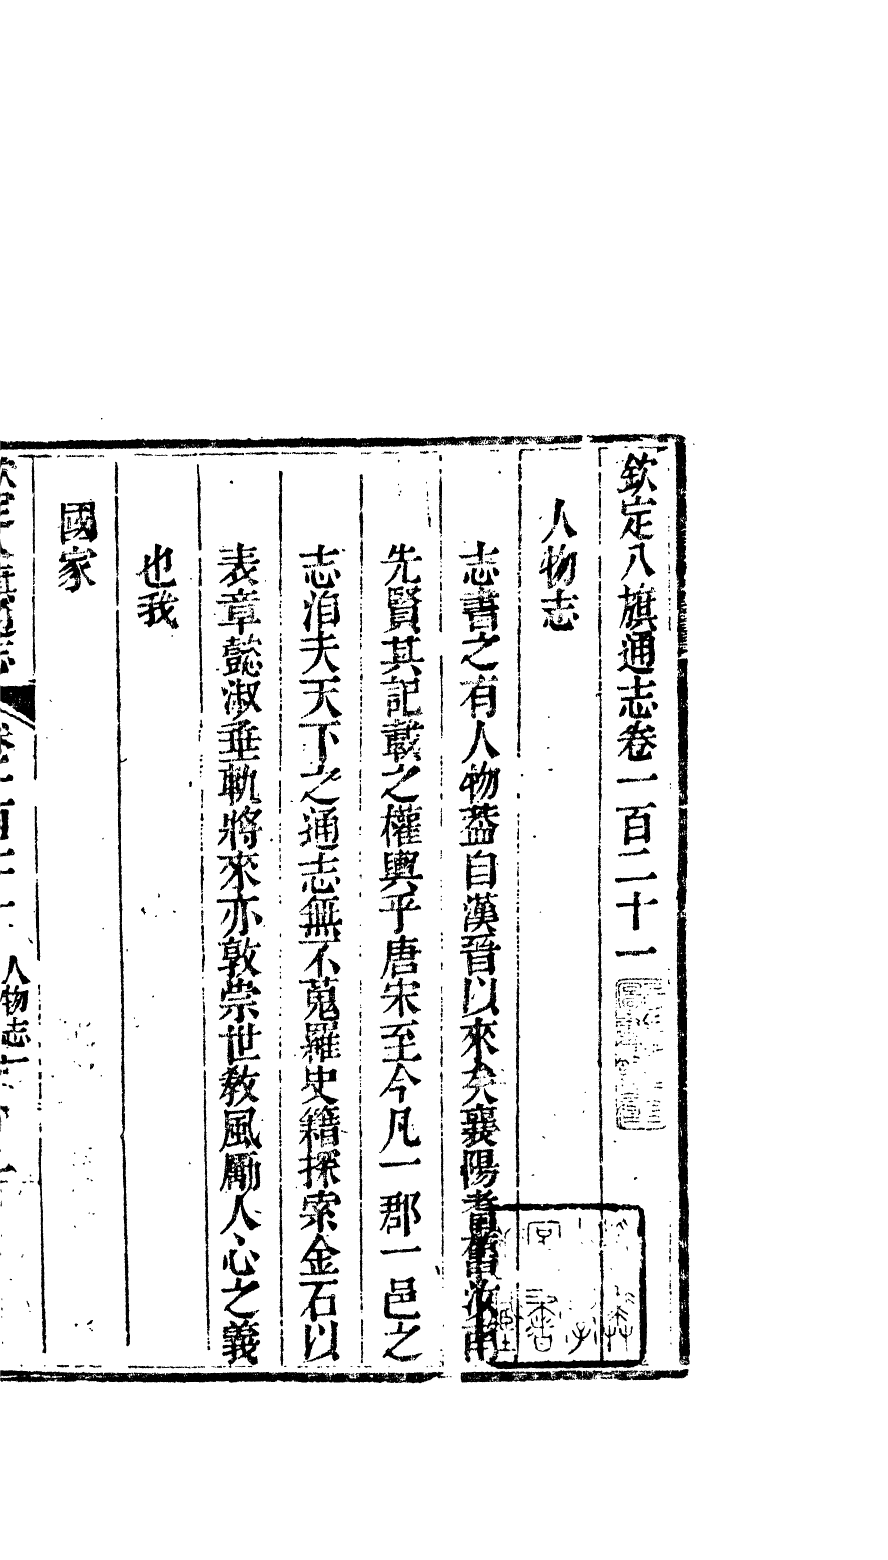 欽定八旗通志卷一百二十一
人物志
志書之有人物葢自漢晉以來矣襄陽耆舊汝南
先賢其記載之權輿乎唐宋至今凡一郡一邑之
志洎夫天下之通志無不蒐羅史籍探索金石以
表章懿淑垂軌將來亦敦崇世敎風勵人心之義
也我
國家
人物志一